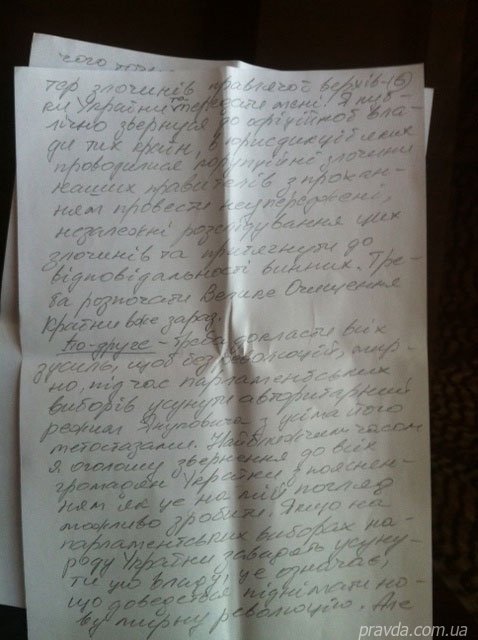 чого
тор злочинів правлячої верхів- (6)
ки України та передати мені. Я пуб-
лічно звернуся до офіційної вла-
ди тих країн, в юрисдикції яких
проводилися корупційні злочини
наших правителів з прохан-
ням провести неупереджені,
незалежні розслідування цих
злочинів та притягнути до
відповідальності винних. Тре-
ба розпочати Велике Очищення
країни вже зараз.
По-друге - треба докласти всіх
зусиль, щоб без революцій, мир-
но, під час парламентських
виборів усунути авторитарний
режим Януковича з усіма його
метостазами. Найближчим часом
я оголошу звернення до всіх
громадян України з пояснен-
ням як це на мій погляд
можливо зробити. Якщо на
парламентських виборах на-
роду України завадять усуну-
ти цю владу, це означає,
що доведеться піднімати но-
ву мирну революцію. Але
pravda.com.ua